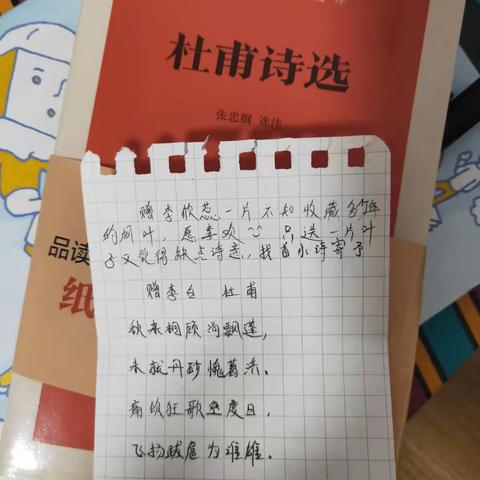 库
杜甫诗选
张忠纲 选注
品读
纸
赠李欣蕊一片不知收藏多少年
的树叶,愿喜欢 只送一片叶
子又觉得缺点诗意,找首小诗寄予
赠李白 杜甫
秋来相顾尚飘蓬,
未就丹砂愧葛洪。
痛饮狂歌空度日,
飞扬跋扈为谁雄。